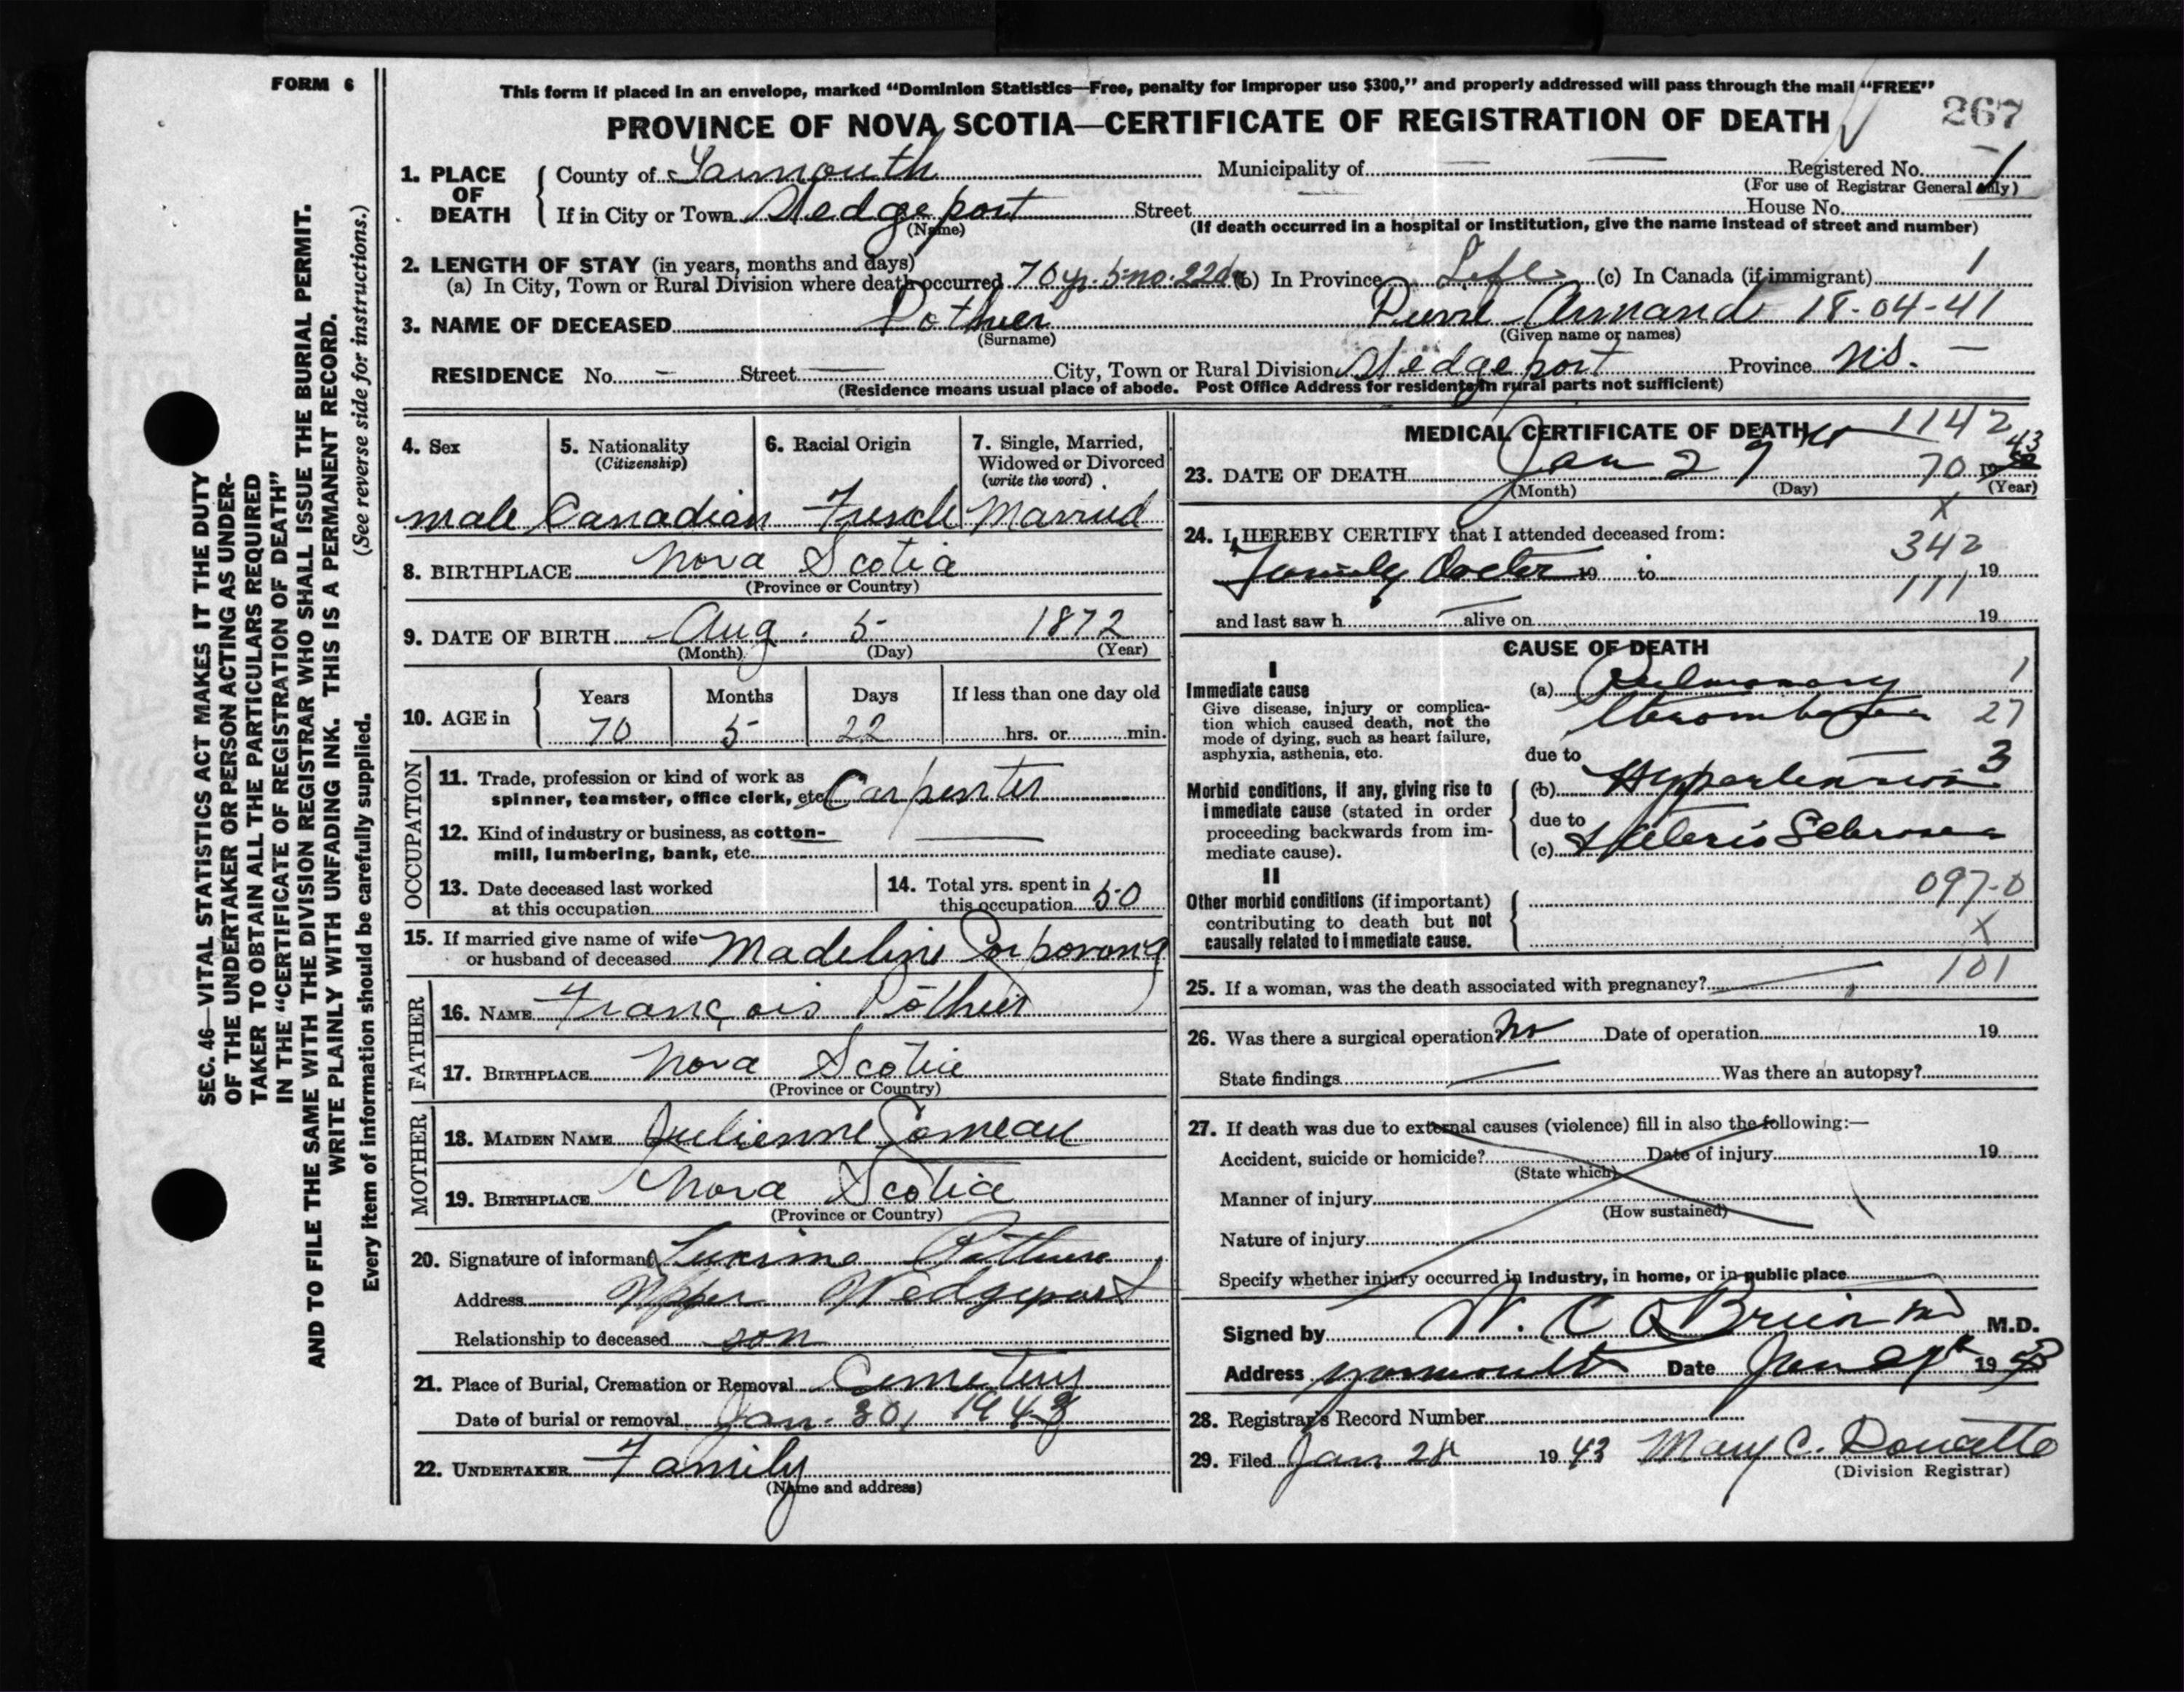 FORM 6
This form if placed in an envelope, marked "Dominion Statistics—Free, penalty for improper use $300," and properly addressed will pass through the mail "FREE"
PROVINCE OF NOVA SCOTIA—CERTIFICATE OF REGISTRATION OF DEATH
267
1. PLACE OF DEATH
County of Yarmouth Municipality of — — Registered No. 1
(For use of Registrar General only)
If in City or Town Wedgeport Street House No.
(Name) (If death occurred in a hospital or institution, give the name instead of street and number)
2. LENGTH OF STAY (in years, months and days)
(a) In City, Town or Rural Division where death occurred 70 yr. 5 mo. 22 d (b) In Province Life (c) In Canada (if immigrant) 1
3. NAME OF DECEASED Pothier Armand 18-04-41
(Surname) (Given name or names)
RESIDENCE No. — Street — City, Town or Rural Division Wedgeport Province N.S. —
(Residence means usual place of abode. Post Office Address for residents in rural parts not sufficient)
4. Sex male
5. Nationality (Citizenship) Canadian
6. Racial Origin French
7. Single, Married, Widowed or Divorced (write the word) Married
8. BIRTHPLACE Nova Scotia
(Province or Country)
9. DATE OF BIRTH Aug. 5 1872
(Month) (Day) (Year)
10. AGE in Years 70 Months 5 Days 22 If less than one day old hrs. or min.
OCCUPATION
11. Trade, profession or kind of work as spinner, teamster, office clerk, etc. Carpenter
12. Kind of industry or business, as cotton-mill, lumbering, bank, etc. —
13. Date deceased last worked at this occupation
14. Total yrs. spent in this occupation 50
15. If married give name of wife or husband of deceased Madeline
FATHER
16. NAME François Pothier
17. BIRTHPLACE Nova Scotia
(Province or Country)
MOTHER
18. MAIDEN NAME Julienne Comeau
19. BIRTHPLACE Nova Scotia
(Province or Country)
20. Signature of informant Pothier
Address Upper Wedgeport
Relationship to deceased son
21. Place of Burial, Cremation or Removal Cemetery
Date of burial or removal Jan. 30, 1943
22. UNDERTAKER Family
(Name and address)
MEDICAL CERTIFICATE OF DEATH 1142
23. DATE OF DEATH Jan 27th 70 19 43
(Month) (Day) (Year)
X
24. I HEREBY CERTIFY that I attended deceased from: 342
Family Doctor 19 to 19
111
and last saw h — alive on 19
CAUSE OF DEATH
I
Immediate cause
Give disease, injury or complication which caused death, not the mode of dying, such as heart failure, asphyxia, asthenia, etc.
(a) Pulmonary 1
Thrombosis 27
due to 3
Morbid conditions, if any, giving rise to immediate cause (stated in order proceeding backwards from immediate cause).
(b) Hypertension
due to
(c) Arterio Sclerosis
II
Other morbid conditions (if important) contributing to death but not causally related to immediate cause.
097-0
X
101
25. If a woman, was the death associated with pregnancy? —
26. Was there a surgical operation? No Date of operation 19
State findings — Was there an autopsy?
27. If death was due to external causes (violence) fill in also the following:—
Accident, suicide or homicide? Date of injury 19
(State which)
Manner of injury
(How sustained)
Nature of injury
Specify whether injury occurred in industry, in home, or in public place
Signed by W. C. O'Brien MD M.D.
Address Yarmouth Date Jan 19 43
28. Registrar's Record Number
29. Filed Jan 28 19 43 Mary C. Doucette
(Division Registrar)
SEC. 46—VITAL STATISTICS ACT MAKES IT THE DUTY
OF THE UNDERTAKER OR PERSON ACTING AS UNDER-
TAKER TO OBTAIN ALL THE PARTICULARS REQUIRED
IN THE "CERTIFICATE OF REGISTRATION OF DEATH"
AND TO FILE THE SAME WITH THE DIVISION REGISTRAR WHO SHALL ISSUE THE BURIAL PERMIT.
WRITE PLAINLY WITH UNFADING INK. THIS IS A PERMANENT RECORD.
Every item of information should be carefully supplied. (See reverse side for instructions.)